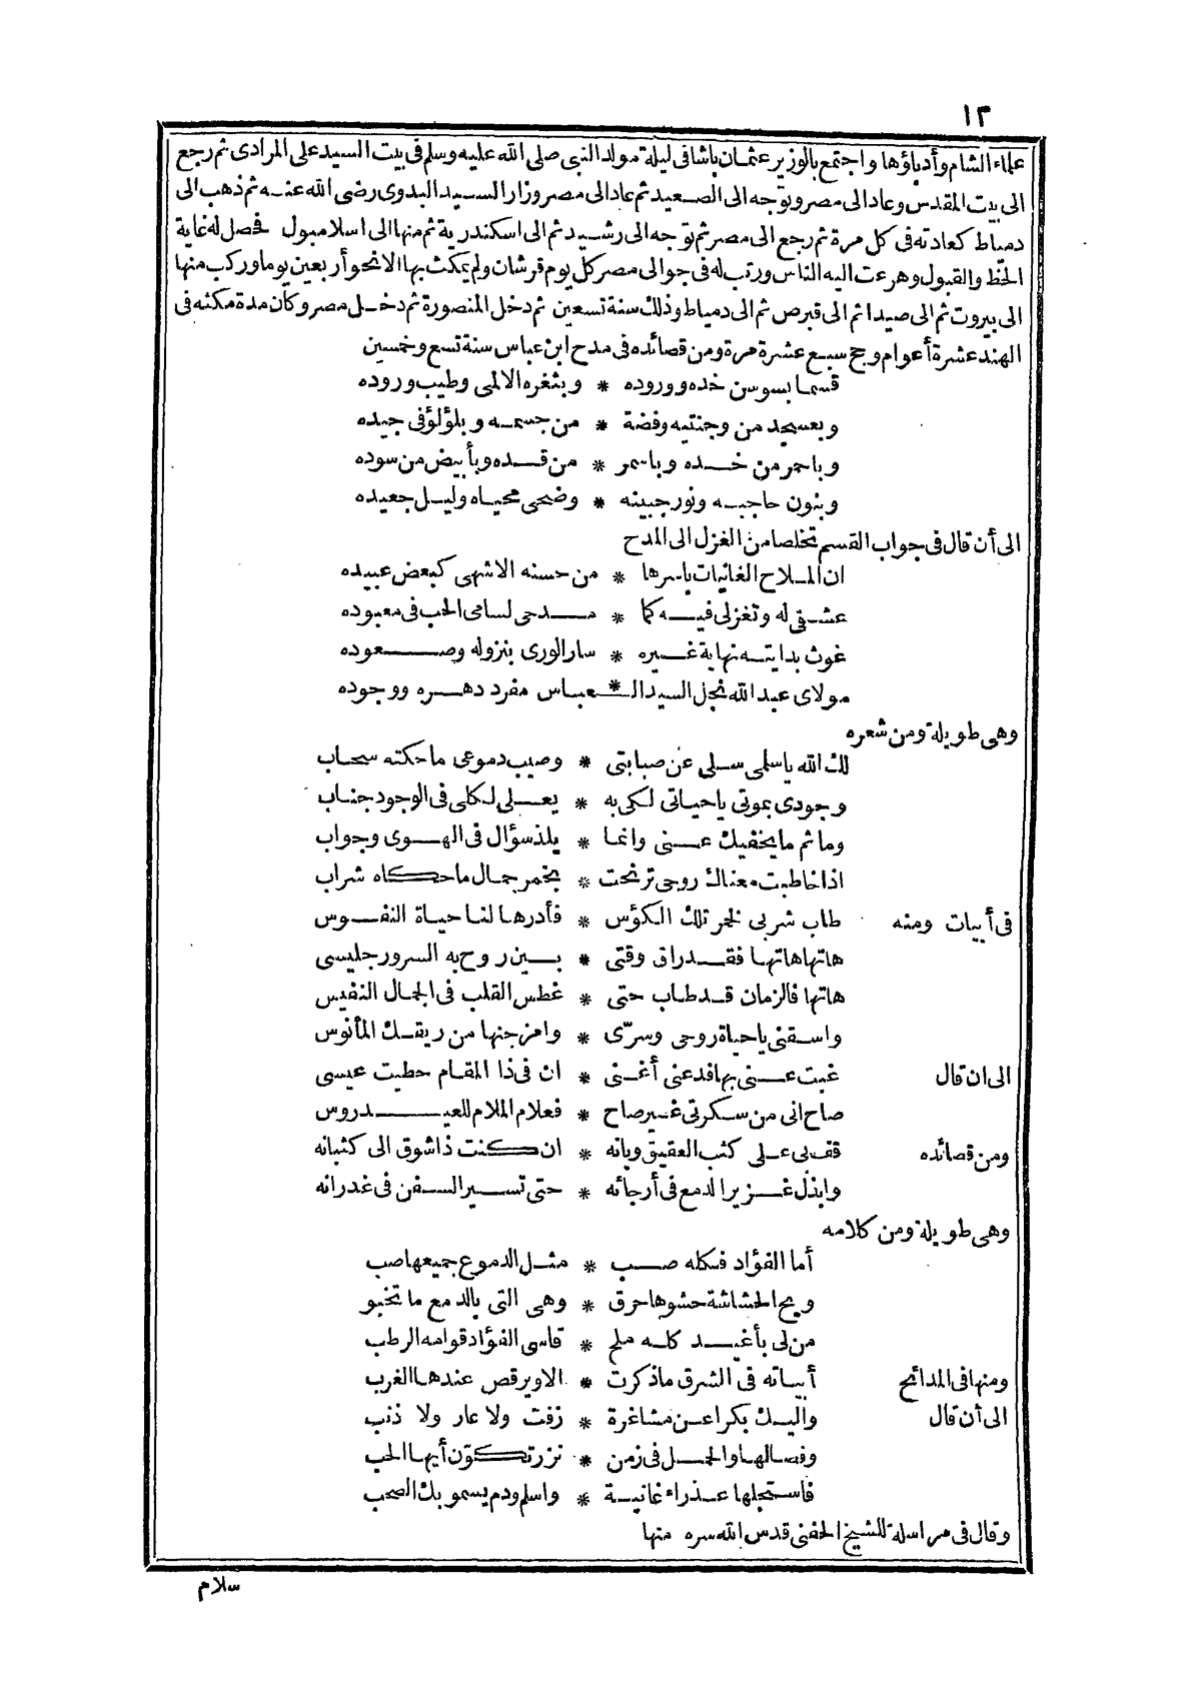 ١٣
علماء الشام وأدباؤها واجتمع بالوزير عثمان باشا فى ليلة مولد النبى صلى الله عليه وسلم فى بيت السيد على المرادى ثم رجع
الى بيت المقدس وعاد الى مصر وتوجه الى الصعيد ثم عاد الى مصر وزار السيد البدوى رضى الله عنه ثم ذهب الى
دمياط كعادته فى كل مرة ثم رجع الى مصر ثم توجه الى رشيد ثم الى اسكندرية ثم منها الى اسلامبول فحصل له غاية
الحظ والقبول وهرعت اليه الناس ورتب له فى جوالى مصر كل يوم قرشان ولم يمكث بها الا نحو أربعين يوما وركب منها
الى بيروت ثم الى صيدا ثم الى قبرص ثم الى دمياط وذلك سنة تسعين ثم دخل المنصورة ثم دخل مصر وكان مدة مكثه فى
الهند عشرة أعوام وحج سبع عشرة مرة ومن قصائده فى مدح ابن عباس سنة تسع وخمسين
قسما بسوسن خده ووروده * وبثغره الالمى وطيب وروده
وبعسجد من وجنتيه وفضة * من جسمه وبلؤلؤ فى جيده
وباحمر من خده وباسمر * من قده وبأبيض من سوده
وبنون حاجبه ونور جبينه * وضحى محياه وليل جعيده
الى أن قال فى جواب القسم تخلصا من الغزل الى المدح
ان الملاح الغانيات باسرها * من حسنه الاشهى كبعض عبيده
عشقى له وتغزلى فيه كما * مدحى لسامى الحب فى معبوده
غوث بدايته نهاية غيره * سار الورى بنزوله وصعوده
مولاى عبد الله نجل السيد ال * عباس مفرد دهره ووجوده
وهى طويلة ومن شعره
لك الله ياسلمى سلى عن صبابتى * وصيب دموعى ما حكته سحاب
وجودى بموتى ياحياتى لكى به * يعلى لكلى فى الوجود جناب
وما ثم ما يخفيك عنى وانما * يلذ سؤال فى الهوى وجواب
اذا خاطبت معناك روحى ترنحت * بخمر جمال ما حكاه شراب
فى أبيات ومنه طاب شربى لخمر تلك الكؤس * فأدرها لنا حياة النفوس
هاتها هاتها فقد راق وقتى * بين روح به السرور جليسى
هاتها فالزمان قد طاب حتى * غطس القلب فى الجمال النفيس
واسقنى ياحياة روحى وسرّى * وامزجنها من ريقك المأنوس
الى ان قال غبت عنى بها فدعنى أغنى * ان فى ذا المقام حطيت عيسى
صاح انى من سكرتى غير صاح * فعلام الملام للعيدروس
ومن قصائده قف بى على كثب العقيق وبانه * ان كنت ذا شوق الى كثبانه
وابذل غزير الدمع فى أرجائه * حتى تسير السفن فى غدرانه
وهى طويلة ومن كلامه
أما الفؤاد فكله صب * مثل الدموع جميعها صب
ويح الحشاشة حشوها حرق * وهى التى بالدمع ما تخبو
من لى بأغيد كله ملح * قاسى الفؤاد قوامه الرطب
ومنها فى المدائح أبياته فى الشرق ما ذكرت * الا ويرقص عندها الغرب
الى أن قال واليك بكرا عن مشاغرة * زفت ولا عار ولا ذنب
وفصالها والحمل فى زمن * نزر تكوّن أيها الحب
فاستجلها عذراء غانية * واسلم ودم يسمو بك الصحب
وقال فى مراسلة للشيخ الحفنى قدس الله سره منها
سلام